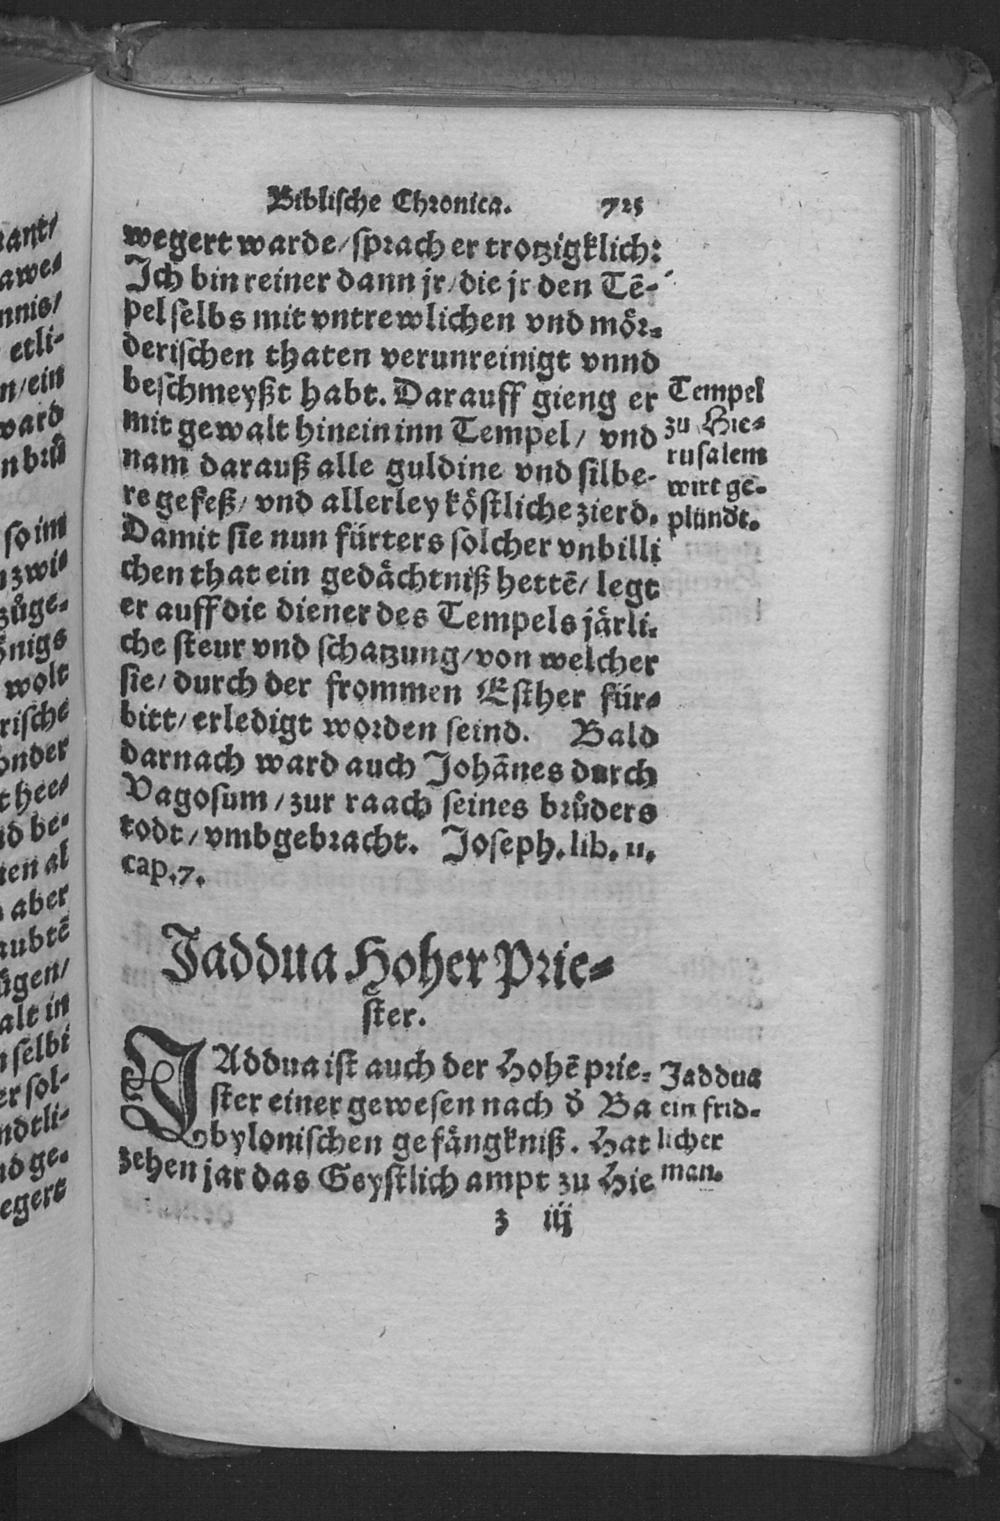 Biblische Chronica. 725
wegert warde/sprach er trotzigklich:
Ich bin reiner dann jr/die jr den Tẽ-
pel selbs mit vntrewlichen vnd mör-
derischen thaten verunreinigt vnnd
beschmeyßt habt. Darauff gieng er
mit gewalt hinein inn Tempel/ vnd
nam darauß alle guldine vnd silbe-
re gefeß/ vnd allerley köstliche zierd.
Damit sie nun fürters solcher vnbilli
chen that ein gedächtniß hettẽ/ legt
er auff die diener des Tempels järli-
che steur vnd schatzung/von welcher
sie/ durch der frommen Esther für-
bitt/ erledigt worden seind. Bald
darnach ward auch Johãnes durch
Vagosum/zur raach seines brůders
todt/vmbgebracht. Joseph.lib.11.
cap.7.
Tempel
zu Hie-
rusalem
wirt ge-
plündt.
Jaddua Hoher Prie-
ster.
JAddua ist auch der Hohẽ prie-
ster einer gewesen nach ð Ba
bylonischen gefängkniß. Hat
zehen jar das Geystlich ampt zu Hie
Jaddua
ein frid-
licher
man.
z iij
etli-
n/ein
ward
so im
wolt
rische
aber
ügen/
alt in
selbs
er sol-
egert